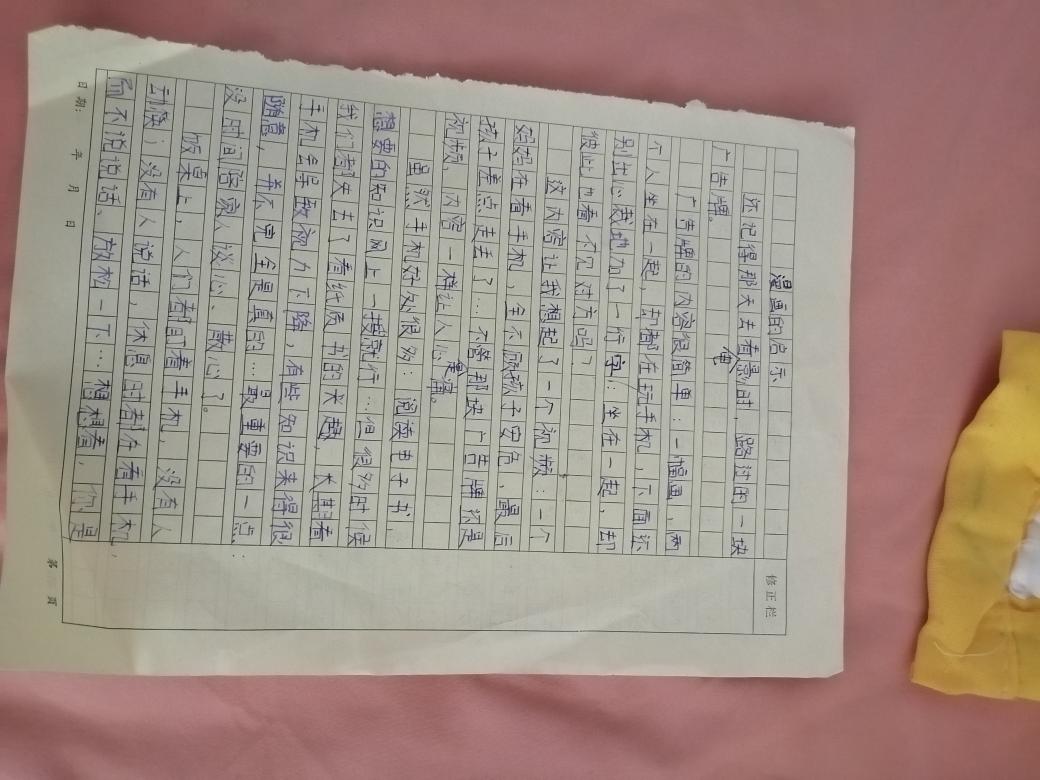 漫画的启示
还记得那天去看电影时，路过的一块
广告牌。
广告牌的内容很简单：一幅画，两
个人坐在一起，却都在玩手机，下面还
别出心裁地加了一行字：坐在一起，却
彼此力看不见对方吗？
这内容让我想起了一个视频：一个
妈妈在看手机，全不顾孩子安危，最后
孩子差点走丢了…不管那块广告牌还是
视频，内容一样让人心寒。
虽然手机好处很多：阅读电子书，
想要的知识网上一搜就行…但很多时候
我们都失去了看纸质书的兴趣，长期看
手机会导致视力下降，有些知识来得很
随意，并不完全是真的…最重要的一点：
没时间陪家人谈心、散心了。
饭桌上，人们都盯着手机，没有人
动筷；没有人说话，休息时都在看手机，
而不说说话、放松一下…想想看，你是
修正栏
日期： 年 月 日
第 页